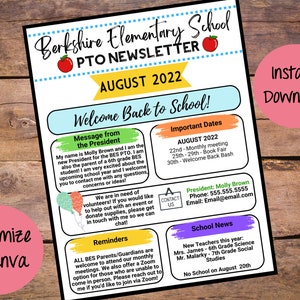 Berkshire Elementary School
PTO NEWSLETTER
AUGUST 2022
Welcome Back to School!
Message from
the President
My name is Molly Brown and I am
new President for the BES PTO. I am
also the parent of a 6th grade BES
student! I am very excited about the
upcoming school year and I welcome
you to contact me with any questions,
concerns or ideas!
Important Dates
AUGUST 2022
22nd - Monthly meeting
25th - 29th - Book Fair
30th - Welcome Back Bash
We are in need of
volunteers! If you would like
to help out with an event or
donate supplies, please get
in touch with me so we can
chat!
CONTACT
US
President: Molly Brown
Phone: 555.555.5555
Email: Email@email.com
Reminders
ALL BES Parents/Guardians are
welcome to attend our monthly
meetings. We also offer a Zoom
option for those who are unable to
come in person. Please reach out to
me if you'd like to join via Zoom!
School News
New Teachers this year:
Mrs. James - 6th Grade Science
Mr. Malarky - 7th Grade Social
Studies
No School on August 20th
Insta
Down
mize
nva